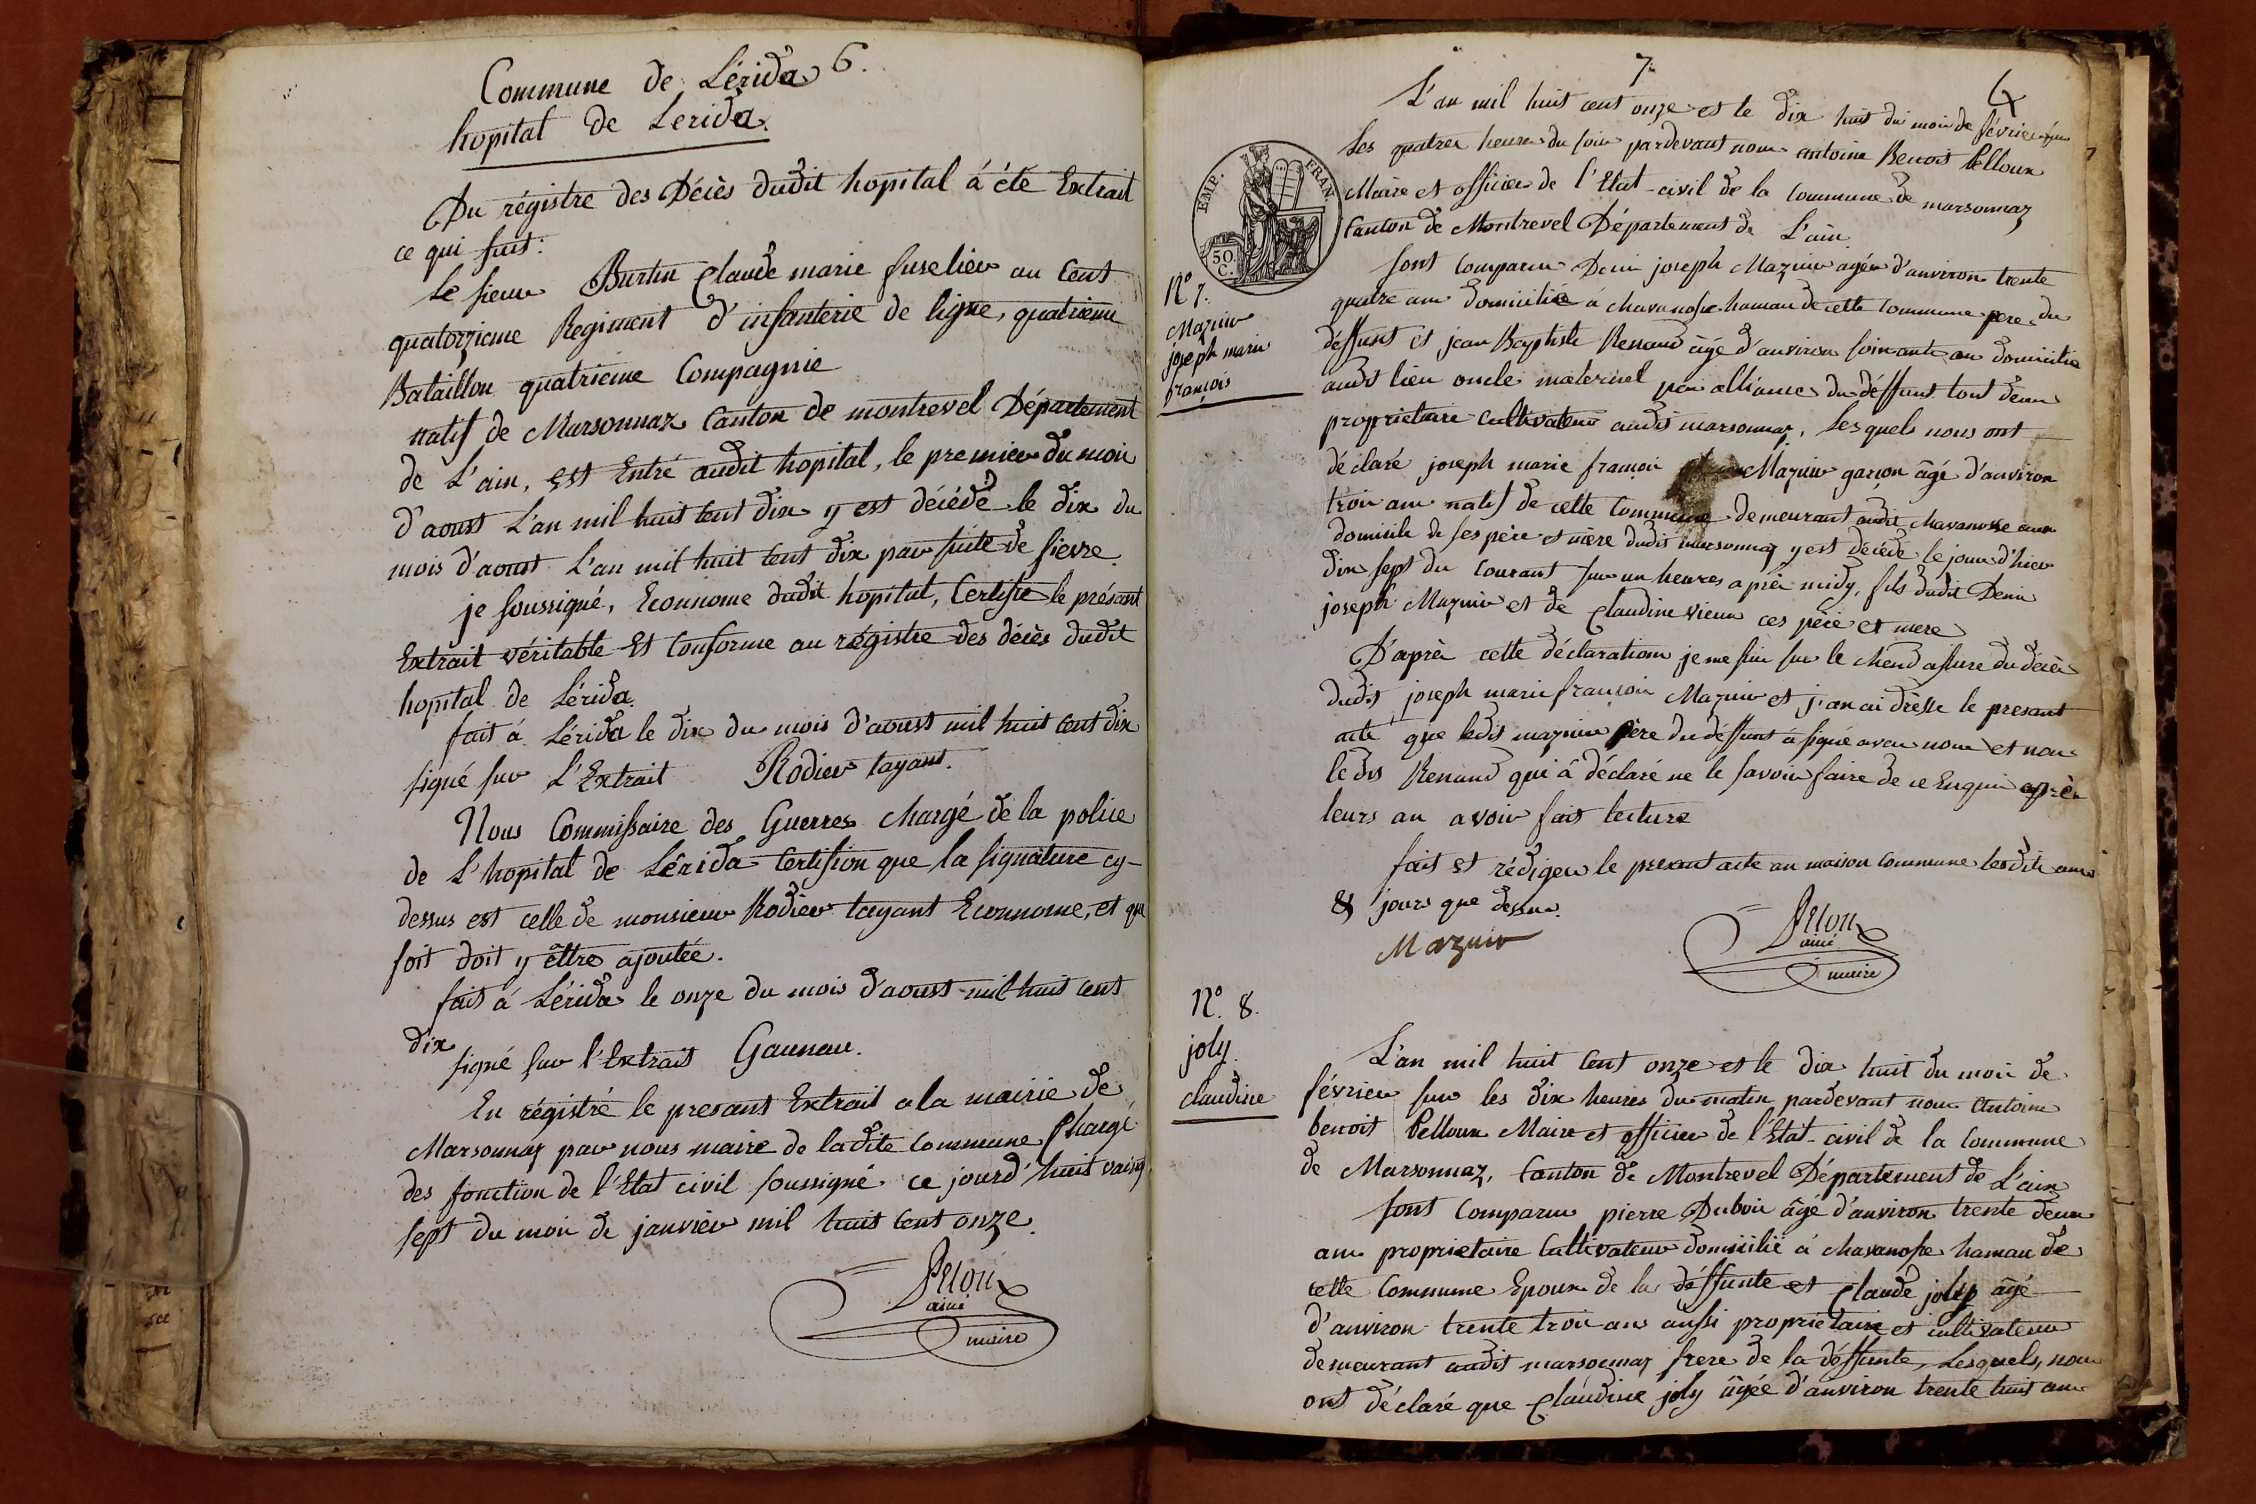 Commune de Lérida 6.
hopital de Lerida.
Du régistre des Décès dudit hopital á été Extrait
ce qui suit:
Le sieur Burtin Claude marie fuselier au Cent
quatorzieme Regiment d'infanterie de ligne, quatrieme
Bataillon quatrieme Compagnie
natif de Marsonnaz Canton de montrevel Département
de L'ain, est Entré audit hopital, le premier du mois
d'aoust L'an mil huit Cent dix y est décédé le dix du
mois d'aoust L'an mil huit Cent dix par suite de fievre.
je soussigné, Econnome dudit hopital, Certifie le présant
Extrait véritable Et Conforme au régistre des décès dudit
hopital de Lérida.
fait á Lérida le dix du mois d'aoust mil huit Cent dix
signé sur L'Extrait Rodier tayant.
Nous Commissaire des Guerres chargé de la police
de L'hopital de Lérida Certifion que la signature cy-
dessus est celle de monsieur Rodier tayant Econnome, et que
foit doit y être ajoutée.
fait á Lérida le onze du mois d'aoust mil huit cent
dix
signé sur l'Extrait Gauneau.
En régistré le presant Extrait a la mairie de
Marsonnaz par nous maire de ladite Commune Chargé
des fonction de l'Etat civil soussigné ce jourd'huit vaingt
sept du moi de janvier mil huit Cent onze.
Pelou
ainé
maire
7.
L'an mil huit cent onze et le dix huit du moi de février sur
Les quatre heure du soir pardevant nous antoine Benoit Pelloux
Maire et officier de l'Etat-civil de la Commune de marsonnaz
Canton de Montrevel Département de L'ain
EMP. FRAN.
50.
C.
N° 7.
Mazuir
joseph marie
françois
sont Comparu Deni joseph Mazuir agér d'anviron trente
quatre an domicilié á chavanosse hamau de cette Commune pere du
déffunt et jean Baptiste Renaud agé d'anviron soixante an domicilié
audit lieu oncle maternel par alliance du déffunt tout deux
proprietaire cultivateur audit marsonnaz, Lesquels nous ont
déclaré joseph marie françoi Mazuir garçon âgé d'anviron
troi an natif de cette Commune demeurant audit chavanosse au
domicile de ses père et mère dudit marsonnaz y est décédé le jour d'hier
dix sept du Courant sur un heures aprèt midy, fils dudit Deni
joseph Mazuir et de Claudine vieux ces père et mere
D'aprèt cette déclaration je me sui sur le chend assuré du décès
dudit joseph marie françoi Mazuir et j'an ai dressé le presant
acte que ledit mazuir père du déffunt a signé avec nous et non
le dit Renaud qui á déclaré ne le savoir faire de ce Enquis aprèt
leurs an avoir fait lecture
fait et rédiger le presant acte an maison Commune lesdits an
et jours que dessus.
Mazuir
Pelou
ainé
maire
N° 8.
joly
claudine
L'an mil huit Cent onze et le dix huit du moi de
février sur les dix heures du matin pardevant nous Antoine
benoit Pelloux Maire et officier de l'Etat-civil de la Commune
de Marsonnaz, Canton de Montrevel Département de L'ain
sont Comparu pierre Duboi âgé d'anviron trente deux
an proprietaire Cultivateur domicilié á chavanosse hamau de
cette Commune Epoux de la déffunte et Claude joly âgé
d'anviron trente troi an aussi proprietaire et cultivateur
demeurant audit marsonnaz frere de la déffunte, Lesquels nous
ont déclaré que Claudine joly âgée d'anviron trente huit an